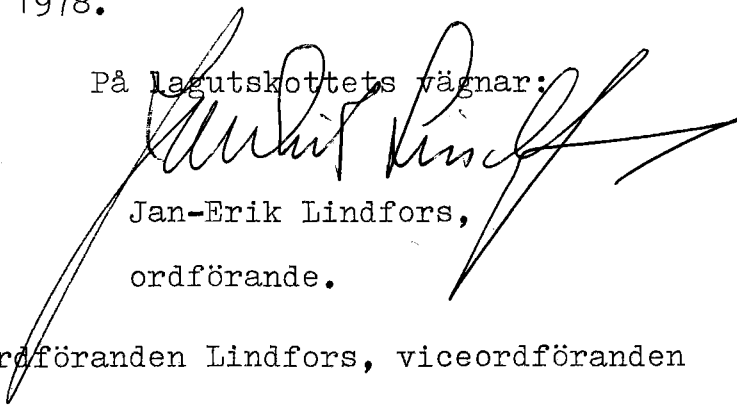 1978.
På lagutskottets vägnar:
Jan-Erik Lindfors,
ordförande.
rdföranden Lindfors, viceordföranden